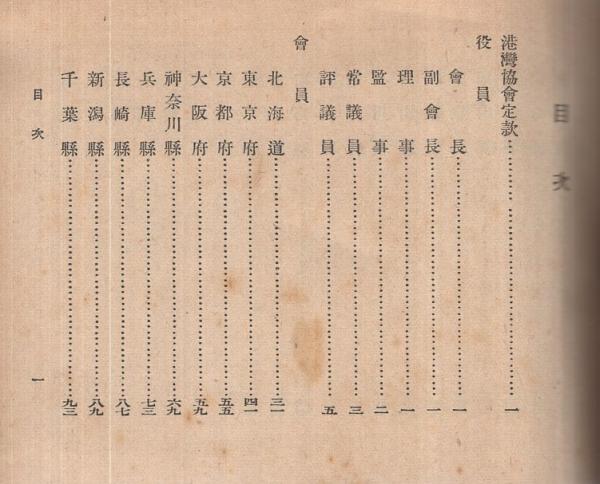 目次
港灣協會定款…………一
役員
會長…………一
副會長…………一
理事…………一
監事…………二
常議員…………三
評議員…………五
會員
北海道…………三一
東京府…………四一
京都府…………五五
大阪府…………五九
神奈川縣…………六九
兵庫縣…………七三
長崎縣…………八七
新潟縣…………八九
千葉縣…………九三
目次
一